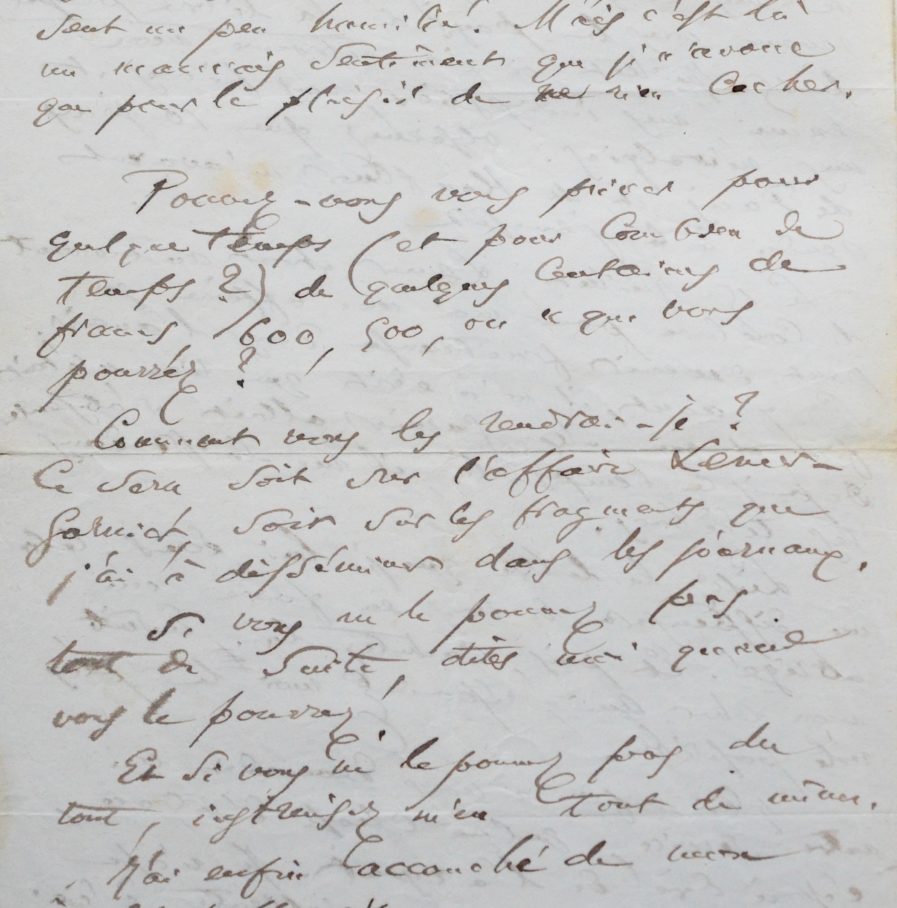 sent un peu humilié. Mais c'est là
un mauvais sentiment que je n'avoue
que pour le plaisir de ne rien cacher.
Pouvez-vous vous priver pour
quelque temps (et pour combien de
temps?) de quelques centaines de
francs, 600, 500, ou ce que vous
pourrez?
Comment vous les rendrai-je?
Ce sera soit sur l'affaire Lemer-
Garnier, soit sur les fragments que
j'ai à disséminer dans les journaux.
Si vous ne le pouvez pas
tout de suite, dites moi quand
vous le pourrez.
Et si vous ne le pouvez pas du
tout, instruisez m'en tout de même.
J'ai enfin accouché de mon